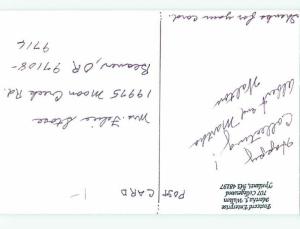 Postcard Enterprise
Martha J. Walton
707 Collegewood
Ypsilanti, MI 48197
POST CARD
1-
Happy
Collecting!
Albert and Martha
Walton
Thanks for your card.
Mrs. Felice Stone
19975 Moon Creek Rd.
Beaver, OR 97108-
9716